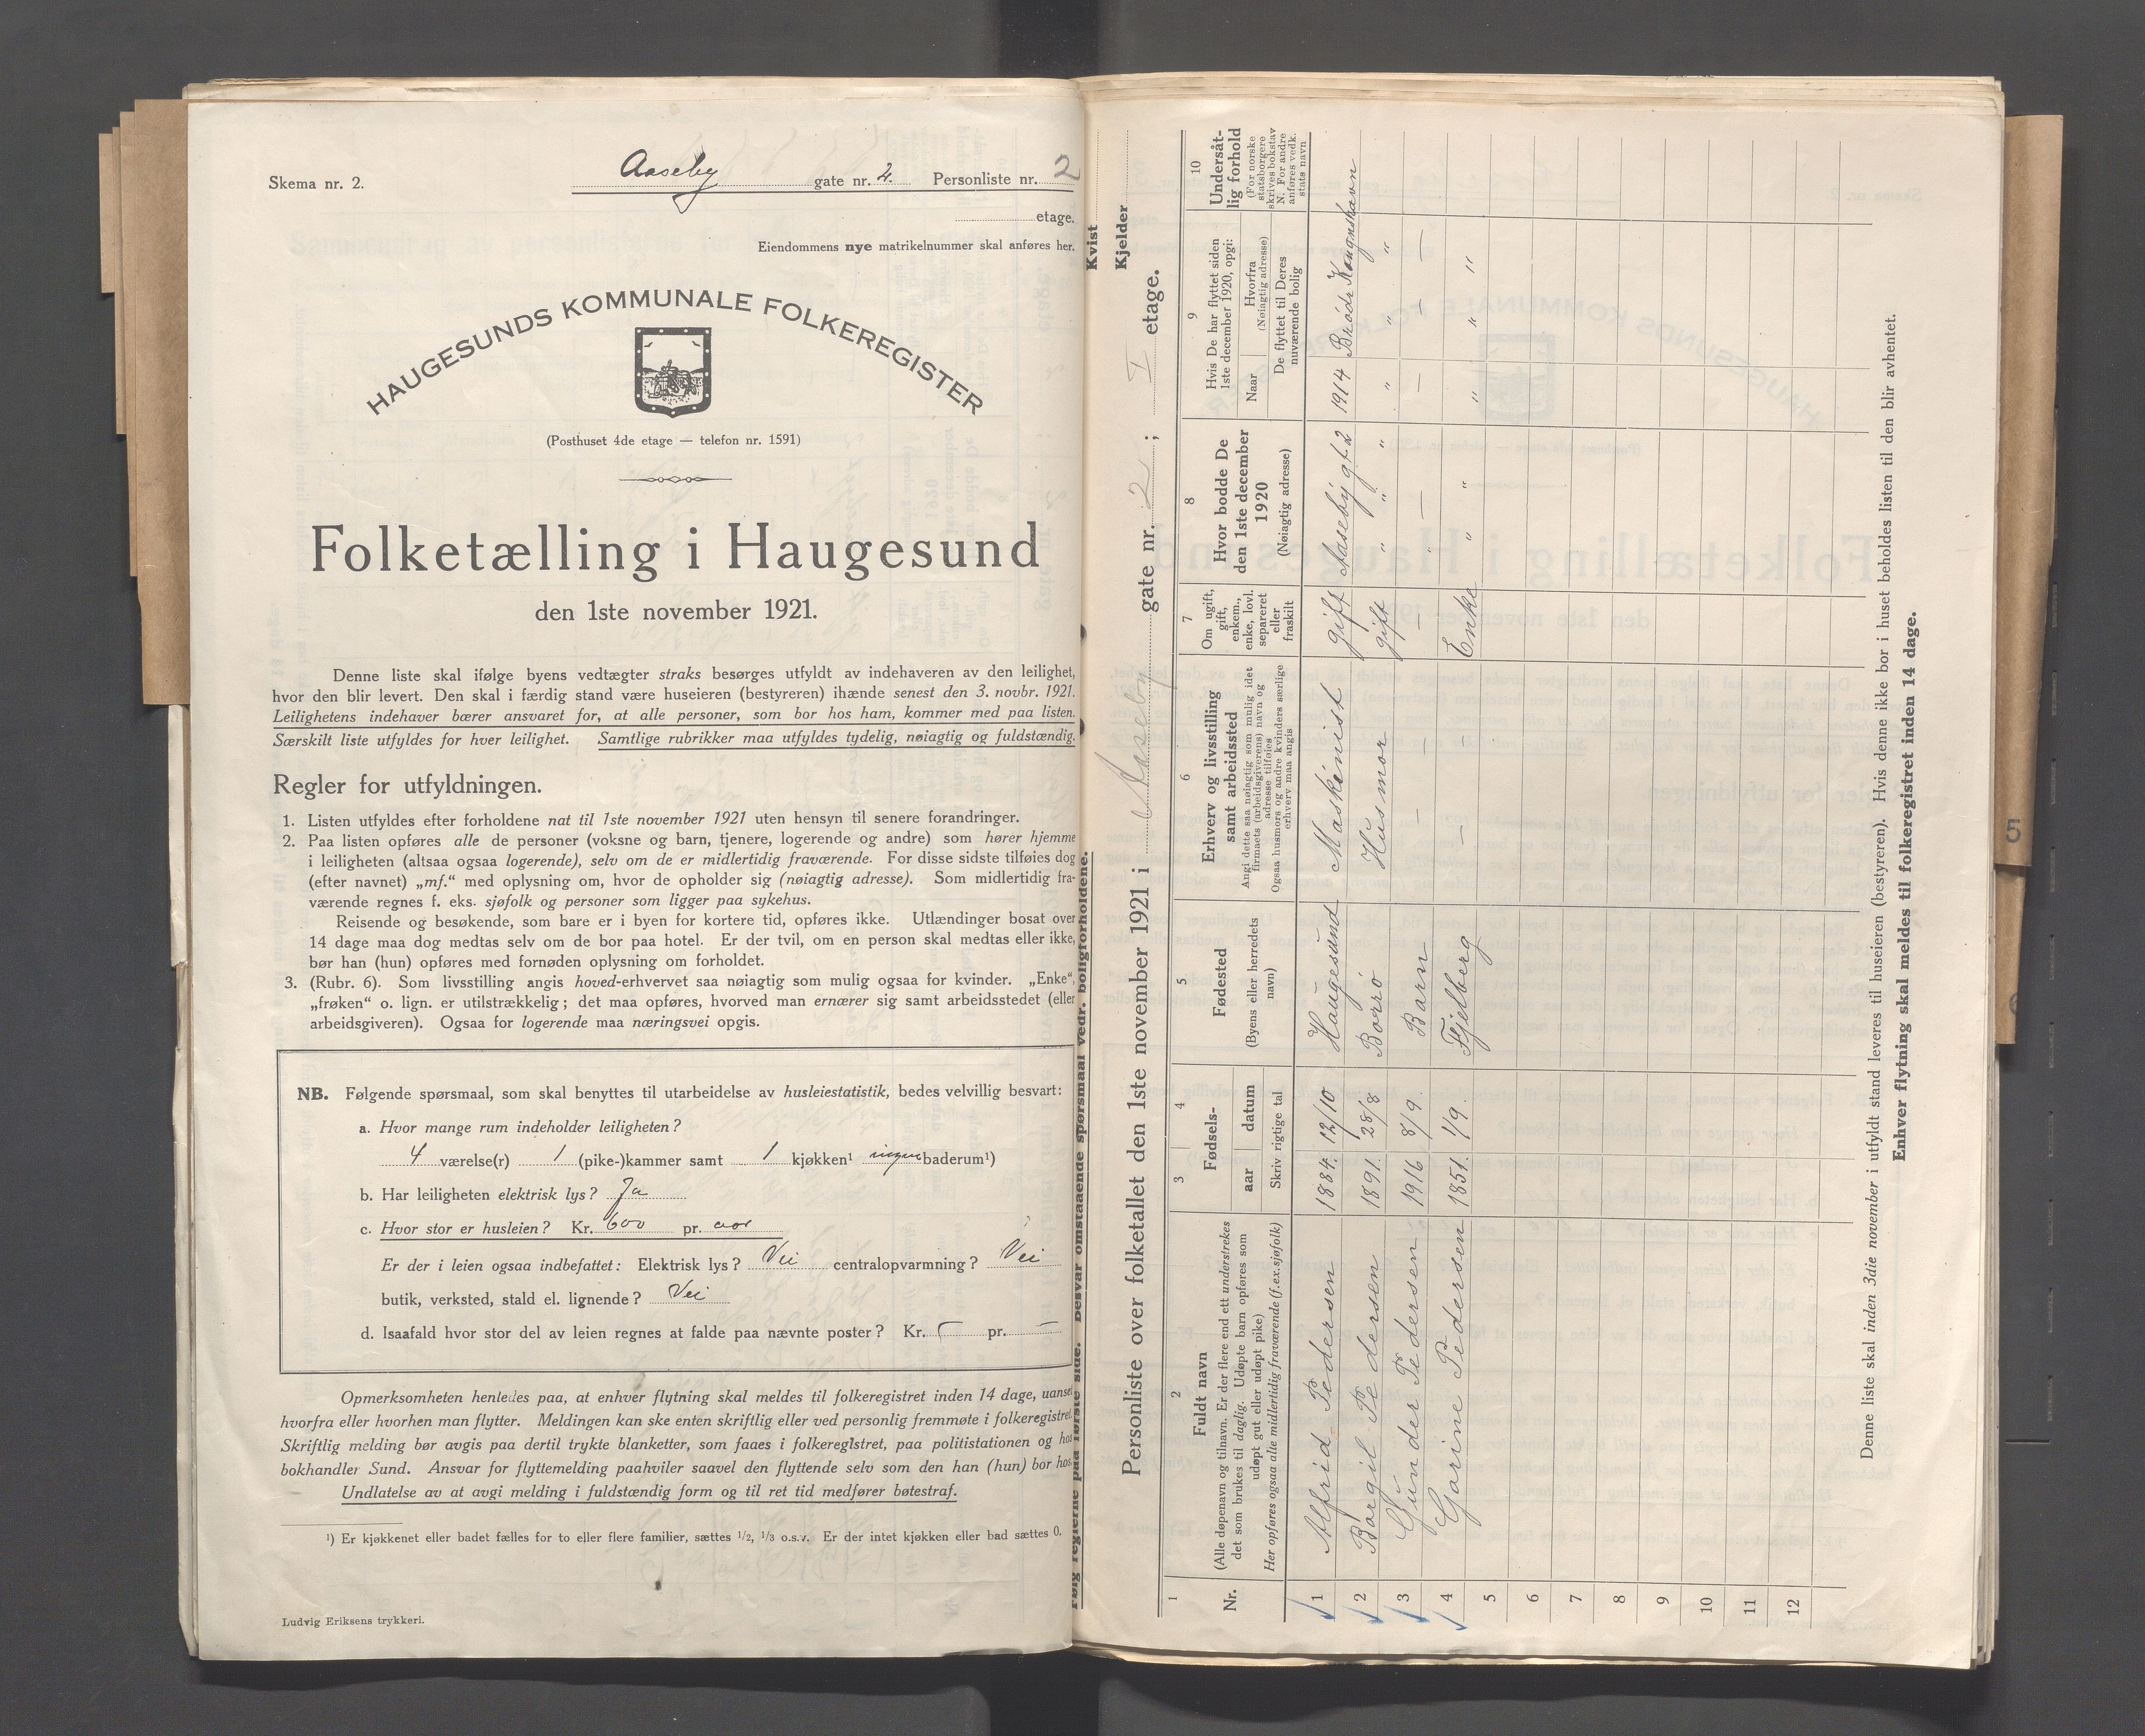 Skema nr. 2.
Aaseby gate nr. 2. Personliste nr. 2
etage.
Eiendommens nye matrikelnummer skal anføres her.
HAUGESUNDS KOMMUNALE FOLKEREGISTER
(Posthuset 4de etage — telefon nr. 1591)
Folketælling i Haugesund
den 1ste november 1921.
Denne liste skal ifølge byens vedtægter straks besørges utfyldt av indehaveren av den leilighet,
hvor den blir levert. Den skal i færdig stand være huseieren (bestyreren) ihænde senest den 3. novbr. 1921.
Leilighetens indehaver bærer ansvaret for, at alle personer, som bor hos ham, kommer med paa listen.
Særskilt liste utfyldes for hver leilighet. Samtlige rubrikker maa utfyldes tydelig, nøiagtig og fuldstændig.
Regler for utfyldningen.
1. Listen utfyldes efter forholdene nat til 1ste november 1921 uten hensyn til senere forandringer.
2. Paa listen opføres alle de personer (voksne og barn, tjenere, logerende og andre) som hører hjemme
i leiligheten (altsaa ogsaa logerende), selv om de er midlertidig fraværende. For disse sidste tilføies dog
(efter navnet) „mf.“ med oplysning om, hvor de opholder sig (nøiagtig adresse). Som midlertidig fra-
værende regnes f. eks. sjøfolk og personer som ligger paa sykehus.
Reisende og besøkende, som bare er i byen for kortere tid, opføres ikke. Utlændinger bosat over
14 dage maa dog medtas selv om de bor paa hotel. Er der tvil, om en person skal medtas eller ikke,
bør han (hun) opføres med fornøden oplysning om forholdet.
3. (Rubr. 6). Som livsstilling angis hoved-erhvervet saa nøiagtig som mulig ogsaa for kvinder. „Enke“,
„frøken“ o. lign. er utilstrækkelig; det maa opføres, hvorved man ernærer sig samt arbeidsstedet (eller
arbeidsgiveren). Ogsaa for logerende maa næringsvei opgis.
NB. Følgende spørsmaal, som skal benyttes til utarbeidelse av husleiestatistik, bedes velvillig besvart:
a. Hvor mange rum indeholder leiligheten?
4 værelse(r) 1 (pike-)kammer samt 1 kjøkken¹ ingen baderum¹)
b. Har leiligheten elektrisk lys? Ja
c. Hvor stor er husleien? Kr. 600 pr. aar
Er der i leien ogsaa indbefattet: Elektrisk lys? Nei centralopvarmning? Nei
butik, verksted, stald el. lignende? Nei
d. Isaafald hvor stor del av leien regnes at falde paa nævnte poster? Kr. — pr. —
Opmerksomheten henledes paa, at enhver flytning skal meldes til folkeregistret inden 14 dage, uanset
hvorfra eller hvorhen man flytter. Meldingen kan ske enten skriftlig eller ved personlig fremmøte i folkeregistret.
Skriftlig melding bør avgis paa dertil trykte blanketter, som faaes i folkeregistret, paa politistationen og hos
bokhandler Sund. Ansvar for flyttemelding paahviler saavel den flyttende selv som den han (hun) bor hos.
Undlatelse av at avgi melding i fuldstændig form og til ret tid medfører bøtestraf.
¹) Er kjøkkenet eller badet fælles for to eller flere familier, sættes 1/2, 1/3 o.s.v. Er der intet kjøkken eller bad sættes 0.
Ludvig Eriksens trykkeri.
Følg reglerne paa første side. Besvar omstaaende spørsmaal vedr. boligforholdene.
Kvist
Kjelder
Personliste over folketallet den 1ste november 1921 i Aaseby gate nr. 2; I etage.
1 2 3 4 5 6 7 8 9 10
Nr.
Fuldt navn
(Alle døpenavn og tilnavn. Er der flere end ett understrekes
det som brukes til daglig. Udøpte barn opføres som
udøpt gut eller udøpt pike)
Her opføres ogsaa alle midlertidig fraværende (f.ex.sjøfolk)
Fødsels-
aar datum
Skriv rigtige tal
Fødested
(Byens eller herredets
navn)
Erhverv og livsstilling
samt arbeidssted
Angi dette saa nøiagtig som mulig idet
firmaets (arbeidsgiverens) navn og
adresse tilføies
Ogsaa husmors og andre kvinders særlige
erhverv maa angis
Om ugift,
gift,
enkem.,
enke, lovl.
separeret
eller
fraskilt
Hvor bodde De
den 1ste december
1920
(Nøiagtig adresse)
Hvis De har flyttet siden
1ste december 1920, opgi:
Naar
Hvorfra
(Nøiagtig adresse)
De flyttet til Deres
nuværende bolig
Undersåt-
lig forhold
(For norske
statsborgere
skrives bokstav
N. For andre
anføres vedk.
stats navn
1 Alfrid Pedersen 1884. 12/10 Haugesund Maskinist gift Aaseby gt 2 1914 Brødr Haugnshavn
2 Borgil Pedersen 1891. 28/8 Borrø Husmor gift " " " " " "
3 Gunder Pedersen 1916 8/9. Barn — — — " — — — —
4 Gorine Pedersen 1851. 1/9. Fjelberg — — Enke " " " " "
5
6
7
8
9
10
11
12
Denne liste skal inden 3die november i utfyldt stand leveres til huseieren (bestyreren). Hvis denne ikke bor i huset beholdes listen til den blir avhentet.
Enhver flytning skal meldes til folkeregistret inden 14 dage.
5
6